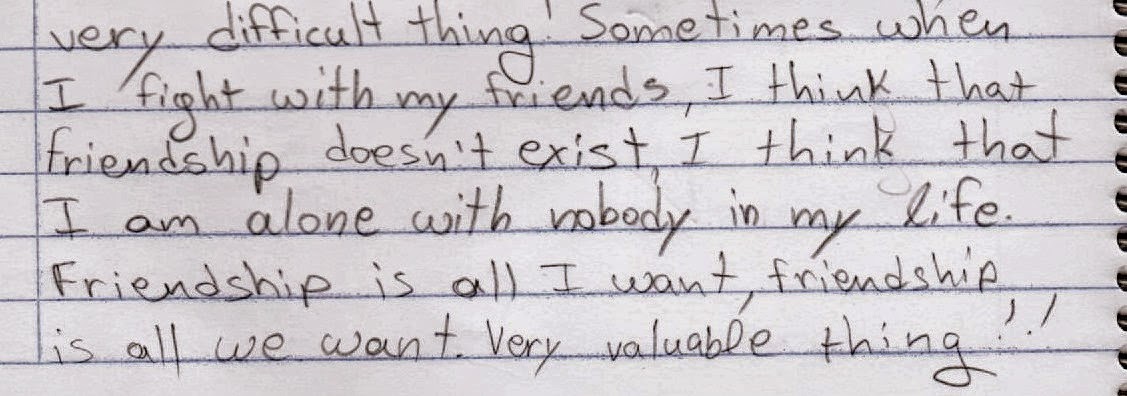 very difficult thing! Sometimes when
I fight with my friends, I think that
friendship doesn't exist, I think that
I am alone with nobody in my life.
Friendship is all I want, friendship
is all we want. Very valuable thing!!